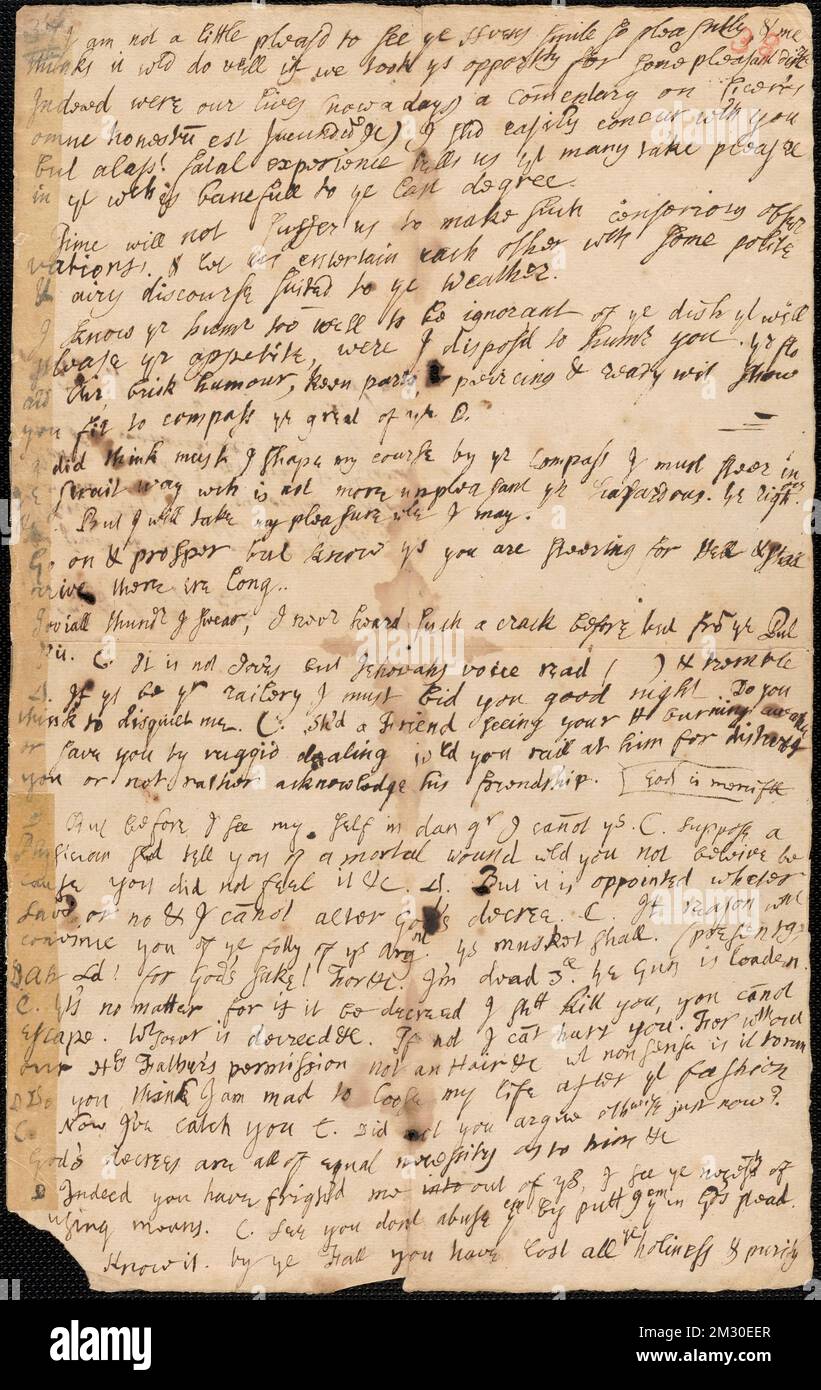 I am not a little pleasd to see ye Rivers smile so pleasantly & me
thinks it wld do well if we took ys opportty for some pleasant
Indeed were our lives (now a days) a comentary on Ciceros
omne honestū est jucundū &c) I shd easily concur with you
but alass! fatal experience tells us yt many take pleasure
in yt wch is banefull to ye last degree.
Time will not suffer us to make such censorious obser
vations. & let us entertain each other with some polite
& airy discourse suited to ye weather.
I know yr humr too well to be ignorant of ye dish yt will
please yr appetite, were I disposd to humr you. yr
Air, brisk humour, keen parts, & peircing & ready wit show
you fit to compass ye great of ye D.
did think must I shape my course by yr compass I must steer in
a strait way wch is not more unpleasant yn hazardous. ye right
But I will take my pleasure wle I may.
Go on & prosper but know ys you are steering for Hell & shall
arrive there ere long..
Joviall thundr I swear, I never heard such a crack before but frō ye Pul
pit. C. It is not Joves but Jehovahs voice read ( ) & tremble
D. If yt be yr railery I must bid you good night. Do you
think to disquiet me. C. Shd a Friend seeing your H burning awake
or save you by ruggid dealing wld you rail at him for disturbg
you or not rather acknowledge his friendship. God is mercifll
But before I see my self in dangr I cañot ys. C. Suppose a
Phisician shd tell you of a mortal wound wld you not beleive be
cause you did not feel it &c. D. But it is appointed whether
savd or no & I cañot alter God's decree. C. If reason wnt
convince you of ye folly of ys argmt. ys musket shall. (presentg)
Dah Ld! for God's sake! For &c. I'm dead ye Gun is loaden.
C. yts no matter for if it be decreed I shll kill you, you cañot
escape. Wtsoevr is decreed &c. If not I cant hurt you. For without
our Hly Father's permission not an Hair &c wt nonsense is it to run
D Do you think I am mad to loose my life after yt fashion
C. Now I've catch you C. Did not you argue othwise just now?
God's decrees are all of equal necessity as to him &c
D Indeed you have frightd me into out of ys, I see ye necessty of
using means. C. See you dont abuse ym by puttg ym in Gds stead.
Know it. by ye Fall you have lost all ye holiness & purity
alamy
Image ID: 2M30EER
www.alamy.com